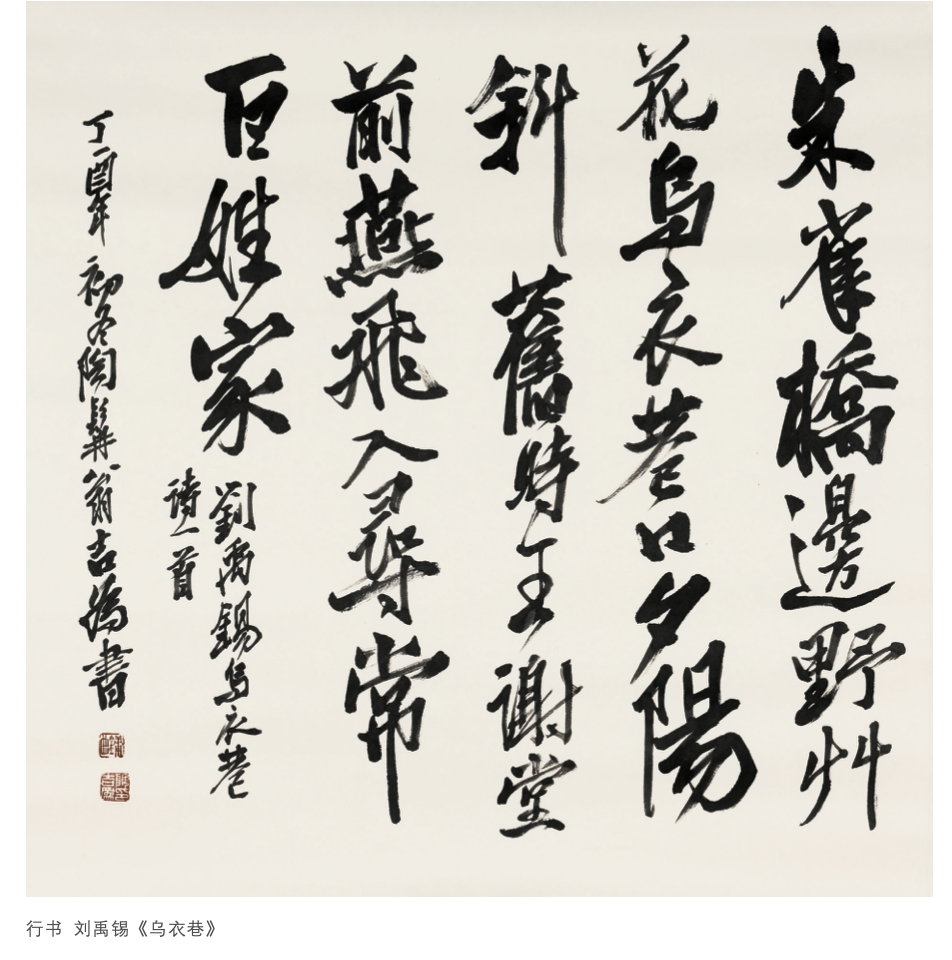 朱雀橋邊野艸
花烏衣巷口夕陽
斜舊時王謝堂
前燕飛入尋常
百姓家
劉禹錫烏衣巷
詩一首
丁酉年 初冬陶髯翁吉為書
行书 刘禹锡《乌衣巷》